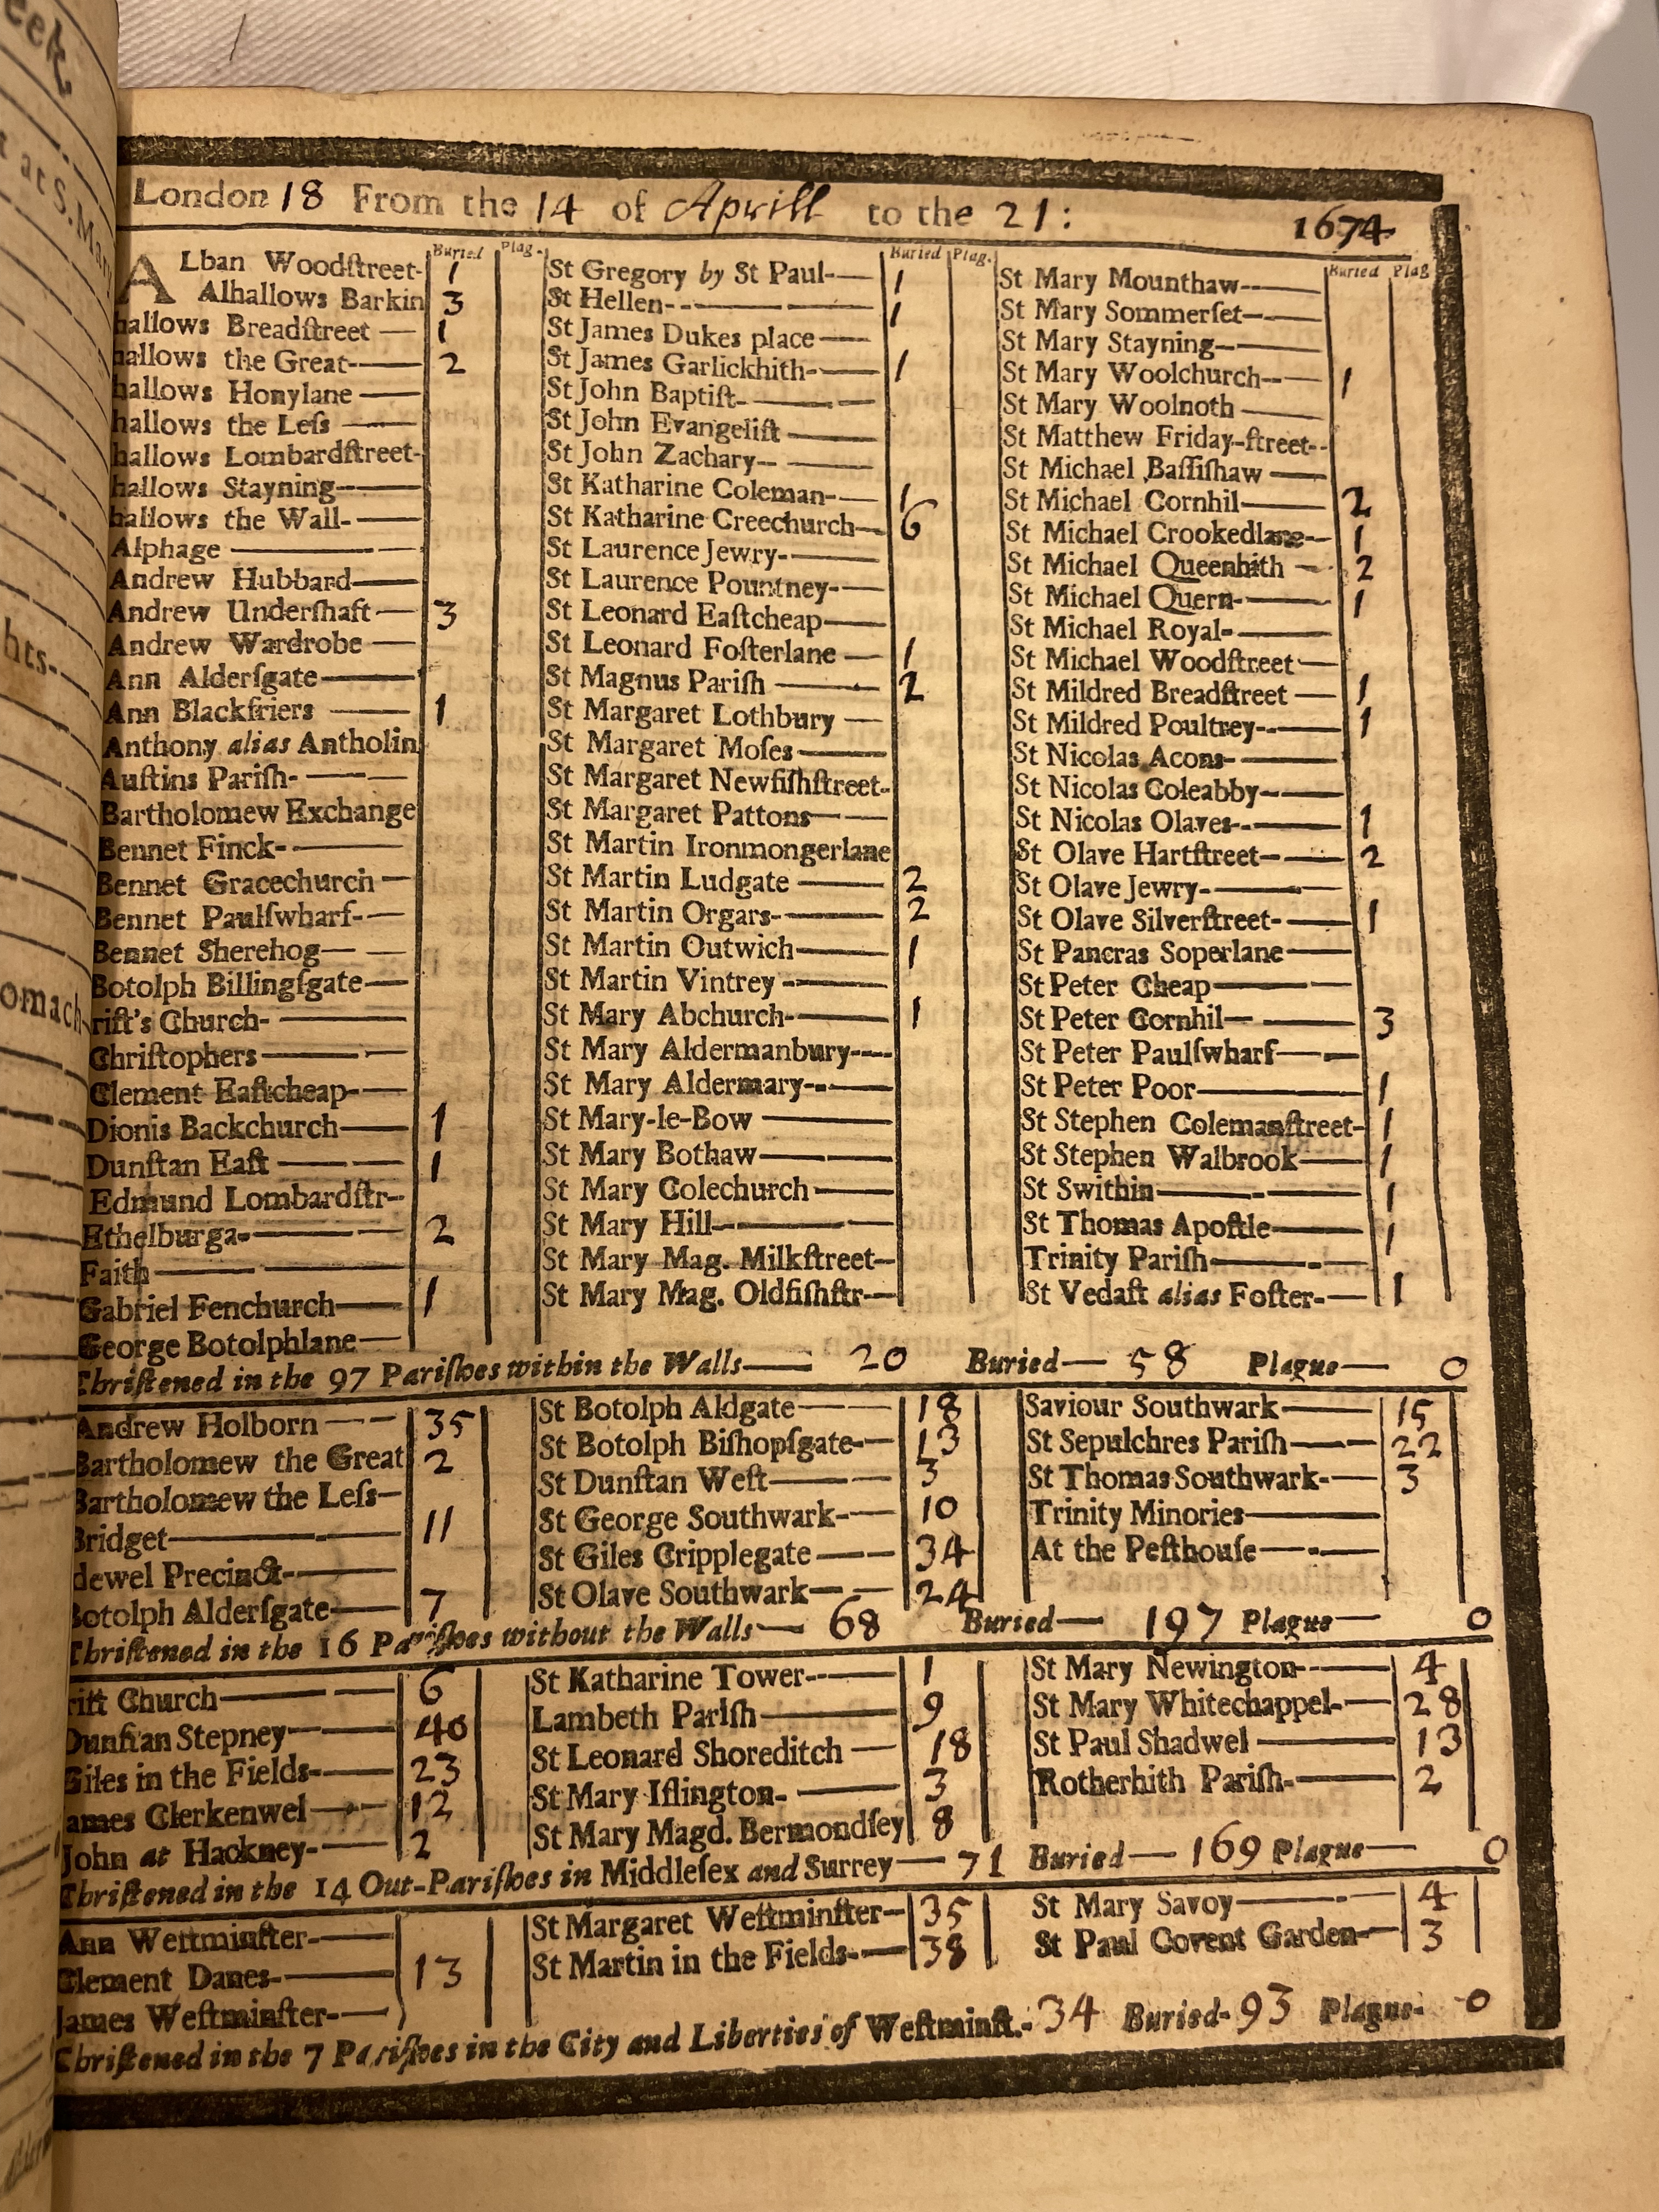 eek
at S. Mary
hts-
omach
London 18 From the 14 of Aprill to the 21: 1674
Buried Plag.
ALban Woodſtreet- 1
Alhallows Barkin 3
hallows Breadſtreet — 1
hallows the Great-— 2
hallows Honylane —
hallows the Leſs —
hallows Lombardſtreet-
hallows Stayning-—
hallows the Wall-—
Alphage —
Andrew Hubbard—
Andrew Underſhaft — 3
Andrew Wardrobe —
Ann Alderſgate—
Ann Blackfriers — 1
Anthony alias Antholin
Auſtins Pariſh-—
Bartholomew Exchange
Bennet Finck-—
Bennet Gracechurch —
Bennet Paulſwharf-—
Bennet Sherehog—
Botolph Billingſgate—
rift's Church-—
Chriſtophers—
Clement Eaſtcheap-—
Dionis Backchurch— 1
Dunſtan Eaſt — 1
Edmund Lombardſtr—
Ethelburga-— 2
Faith—
Gabriel Fenchurch— 1
George Botolphlane—
Buried Plag.
St Gregory by St Paul-— 1
St Hellen-— 1
St James Dukes place—
St James Garlickhith-— 1
St John Baptiſt-—
St John Evangeliſt—
St John Zachary-—
St Katharine Coleman-— 1
St Katharine Creechurch— 6
St Laurence Jewry-—
St Laurence Pountney-—
St Leonard Eaſtcheap—
St Leonard Foſterlane — 1
St Magnus Pariſh — 2
St Margaret Lothbury —
St Margaret Moſes—
St Margaret Newfiſhſtreet-
St Margaret Pattons—
St Martin Ironmongerlane
St Martin Ludgate — 2
St Martin Orgars-— 2
St Martin Outwich— 1
St Martin Vintrey-—
St Mary Abchurch-— 1
St Mary Aldermanbury-—
St Mary Aldermary-—
St Mary-le-Bow —
St Mary Bothaw—
St Mary Colechurch—
St Mary Hill—
St Mary Mag. Milkſtreet—
St Mary Mag. Oldfiſhſtr—
Buried Plag
St Mary Mounthaw-—
St Mary Sommerſet-—
St Mary Stayning-—
St Mary Woolchurch-— 1
St Mary Woolnoth —
St Matthew Friday-ſtreet--
St Michael Baſſiſhaw —
St Michael Cornhil— 2
St Michael Crookedlane-- 1
St Michael Queenhith — 2
St Michael Quern-— 1
St Michael Royal-—
St Michael Woodſtreet—
St Mildred Breadſtreet — 1
St Mildred Poultrey-— 1
St Nicolas Acons-—
St Nicolas Coleabby-—
St Nicolas Olaves-— 1
St Olave Hartſtreet-— 2
St Olave Jewry-—
St Olave Silverſtreet-— 1
St Pancras Soperlane—
St Peter Cheap—
St Peter Cornhil— 3
St Peter Paulſwharf—
St Peter Poor— 1
St Stephen Colemanſtreet- 1
St Stephen Walbrook— 1
St Swithin— 1
St Thomas Apoſtle— 1
Trinity Pariſh—
St Vedaſt alias Foſter-— 1
Chriſtened in the 97 Pariſhes within the Walls— 20 Buried— 58 Plague— 0
Andrew Holborn — 35
Bartholomew the Great 2
Bartholomew the Leſs—
Bridget— 11
dewel Precinct-—
Botolph Alderſgate— 7
St Botolph Aldgate— 18
St Botolph Biſhopſgate-— 13
St Dunſtan Weſt— 3
St George Southwark-— 10
St Giles Cripplegate— 34
St Olave Southwark— 24
Saviour Southwark— 15
St Sepulchres Pariſh— 22
St Thomas Southwark-— 3
Trinity Minories—
At the Peſthouſe—
Chriſtened in the 16 Pariſhes without the Walls— 68 Buried— 197 Plague— 0
rift Church— 6
Dunſtan Stepney— 40
Giles in the Fields-— 23
ames Clerkenwel— 12
John at Hackney-— 2
St Katharine Tower-— 1
Lambeth Pariſh— 9
St Leonard Shoreditch — 18
St Mary Iſlington-— 3
St Mary Magd. Bermondſey 8
St Mary Newington-— 4
St Mary Whitechappel-— 28
St Paul Shadwel — 13
Rotherhith Pariſh-— 2
Chriſtened in the 14 Out-Pariſhes in Middleſex and Surrey— 71 Buried— 169 Plague— 0
Ann Weſtminſter-—
Clement Danes-— 13
James Weſtminſter-—
St Margaret Weſtminſter— 35
St Martin in the Fields-— 38
St Mary Savoy— 4
St Paul Covent Garden— 3
Chriſtened in the 7 Pariſhes in the City and Liberties of Weſtminſt.- 34 Buried- 93 Plague- 0